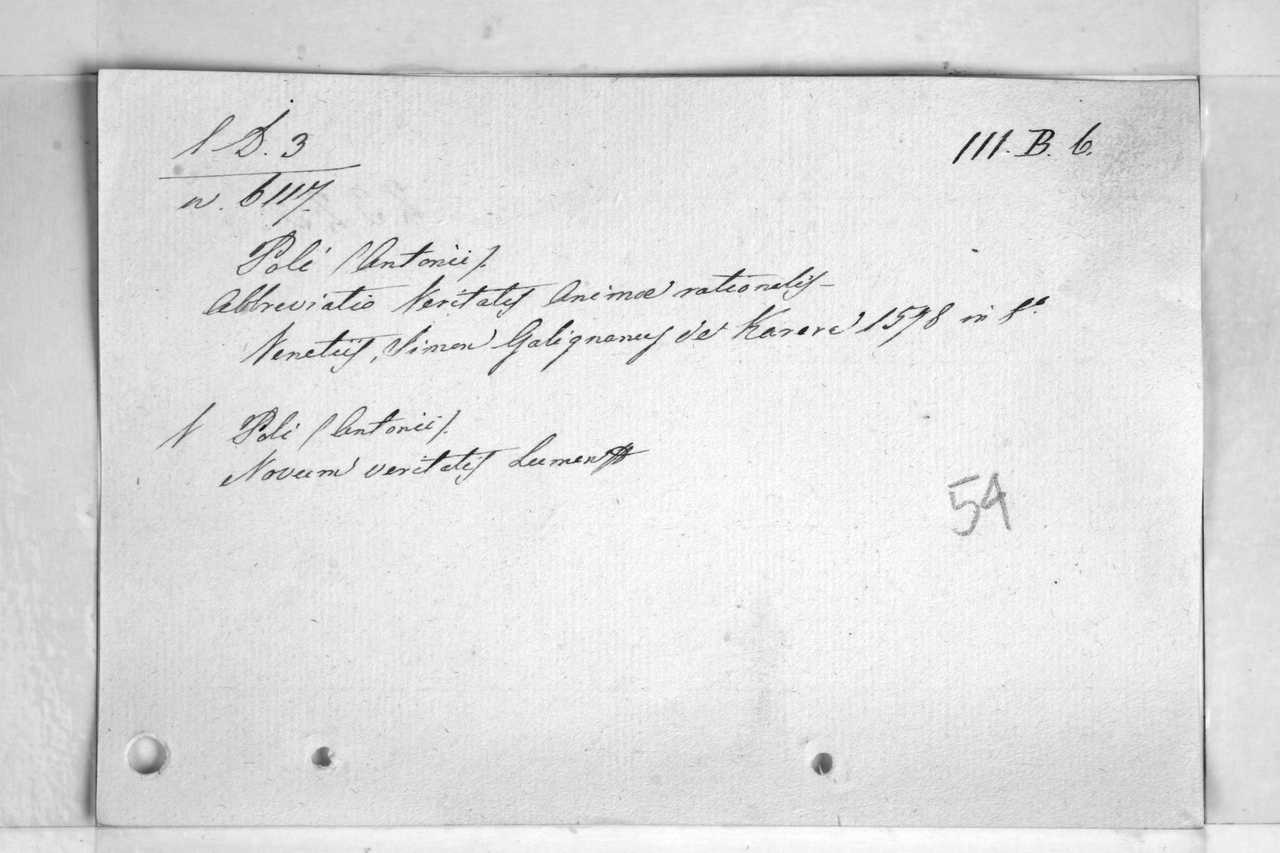 l. D. 3
III. B. 6.
n. 6117.
Poli /Antonii/.
Abbreviatio Veritatis Animæ rationalis
Venetiis, Simon Galignanus de Karera 1598 in 8º
Poli /Antonii/.
Novum veritatis Lumen
54